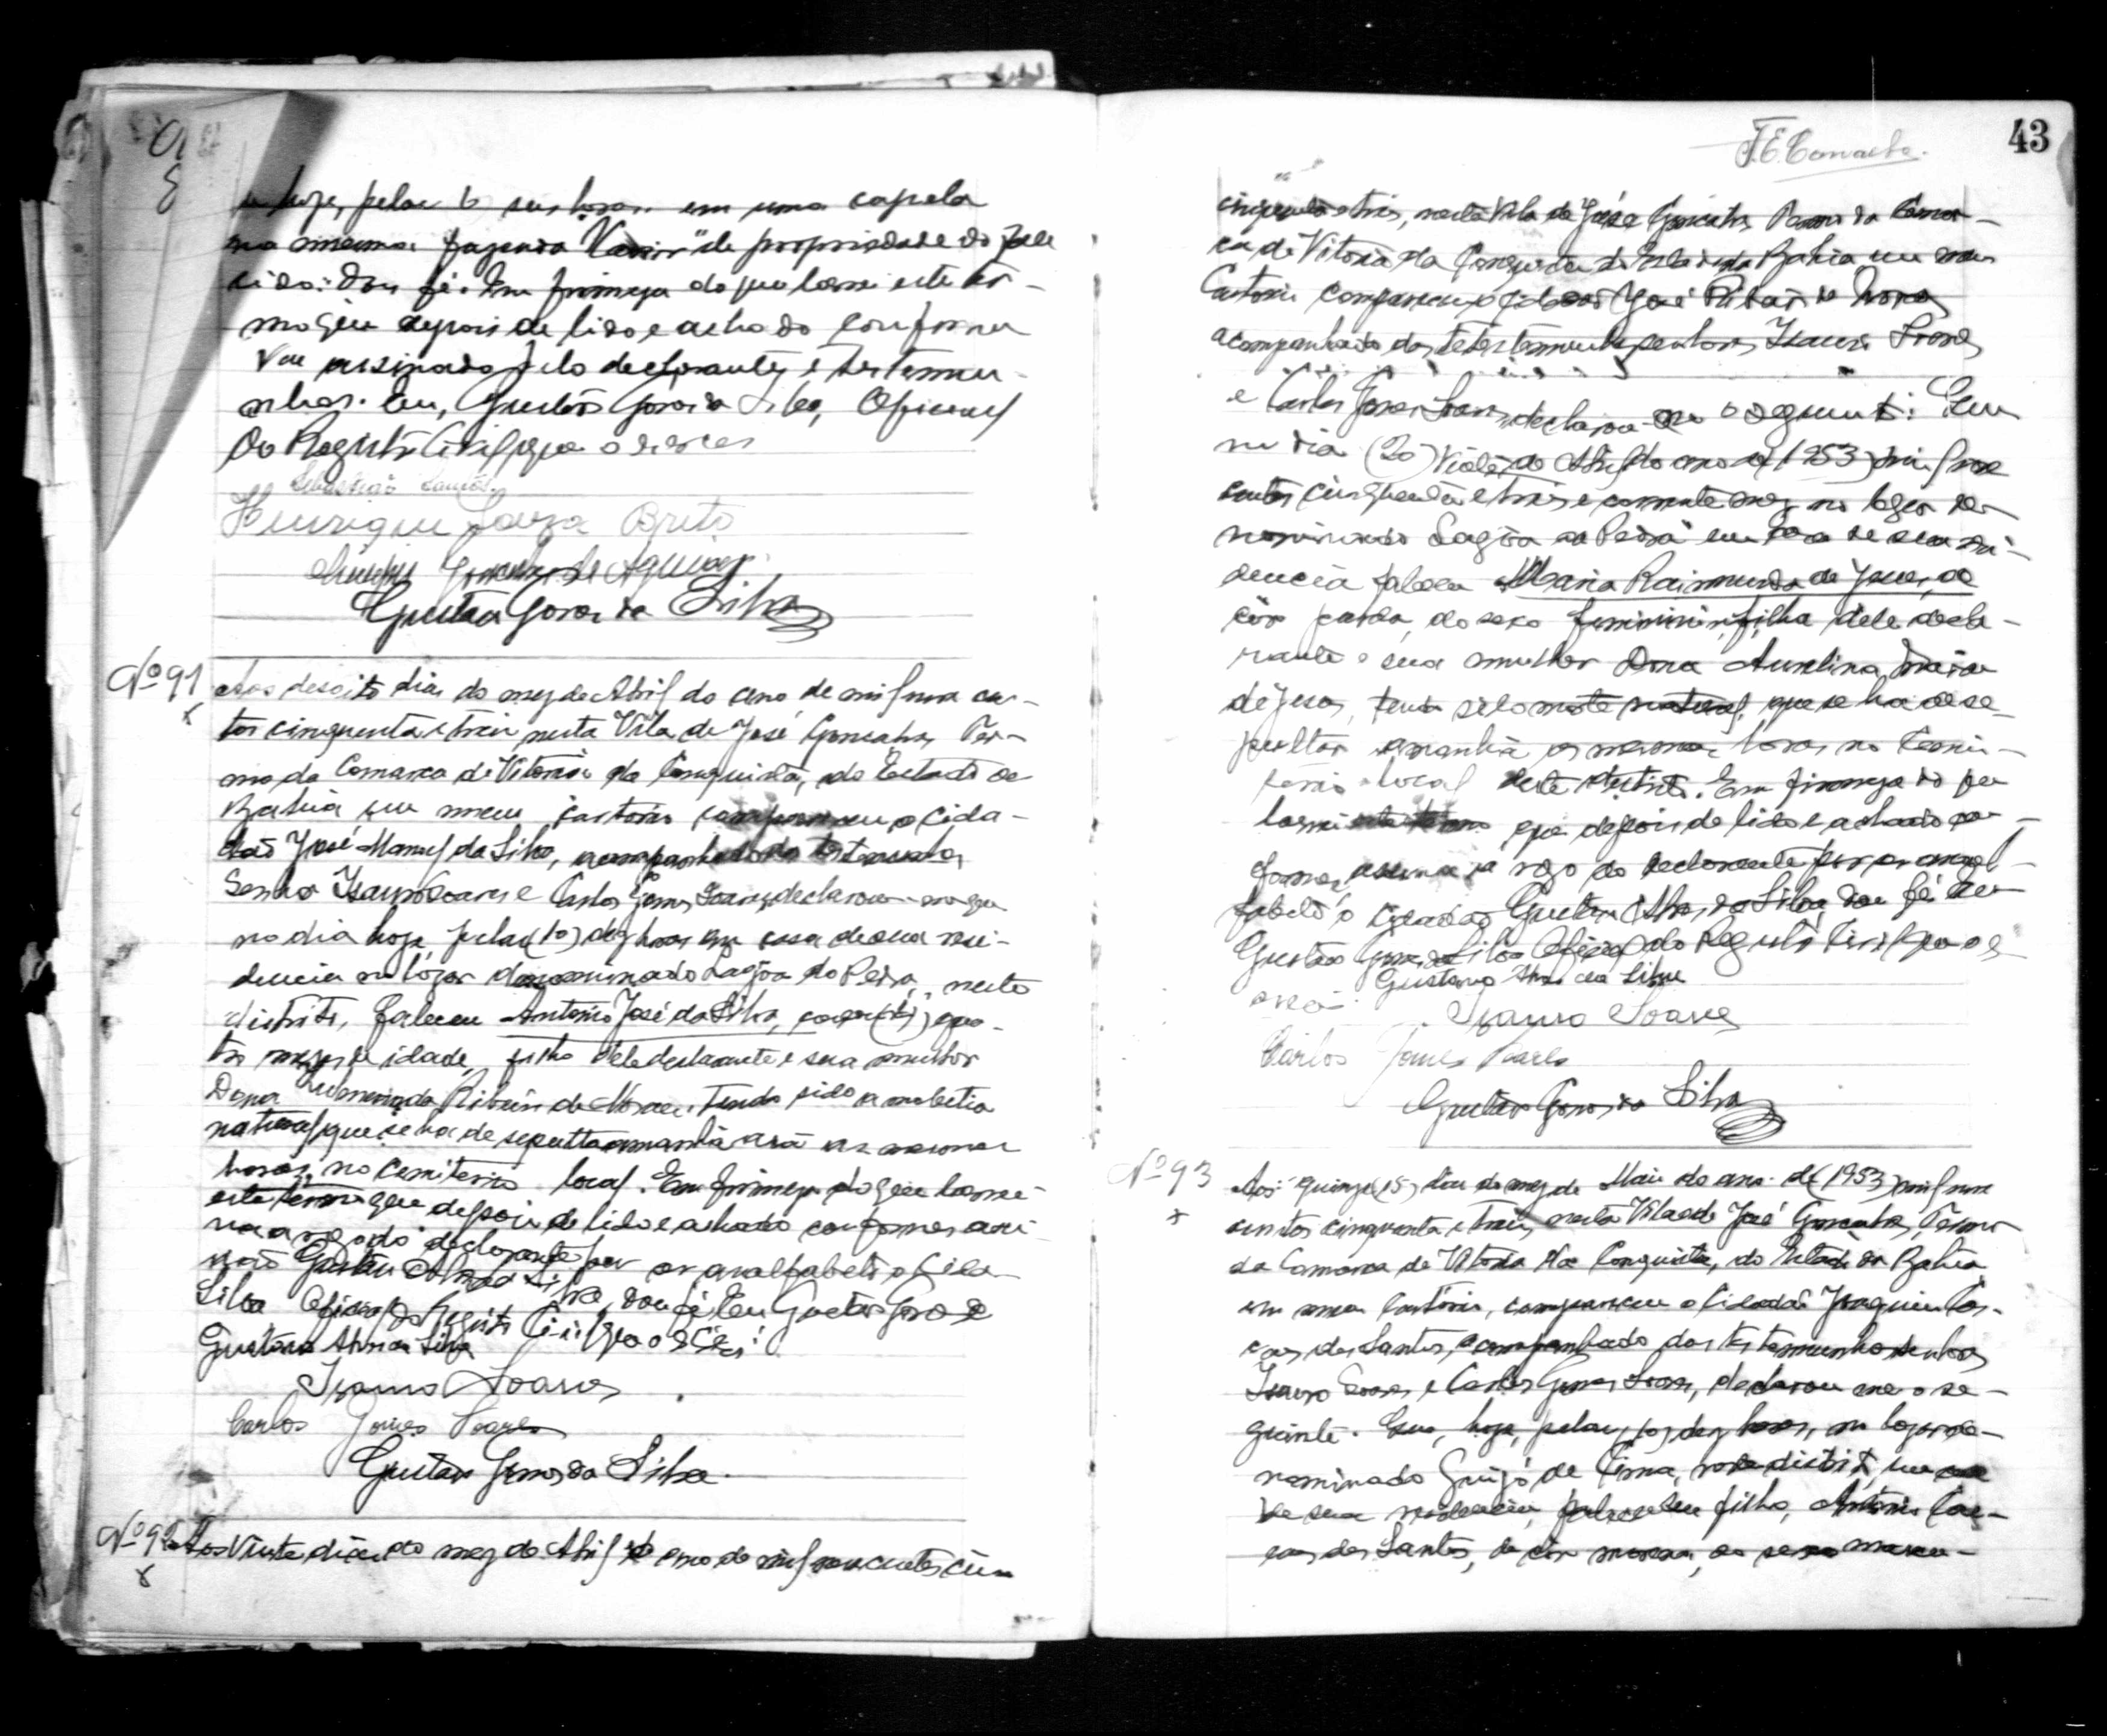 hoje, pelas 6 seis horas em uma capela
na mesma fazenda de propriedade do fale
cido. Dou fé. Em firmeza do que lavrei este ter-
mo que depois de lido e achado conforme
vae assinado pelo declarante e testemu-
nhas. Eu, Gustavo Gomes da Silva, Oficial
do Registro Civil que o escrevi
Sebastião Santos
Henrique Souza Brito
Gonçalves de Aguiar
Gustavo Gomes da Silva
Nº 91 Aos desoito dias do mez de Abril do ano de mil nove cen-
tos cinquenta e treis nesta Vila de José Gonçalves Ter-
mo da Comarca de Vitoria da Conquista, do Estado da
Bahia em meu cartorio compareceu o cida-
dão José Manuel da Silva, acompanhado das testemunhas
Senhor Isauro Soares e Carlos Gomes Soares, declarou-me que
no dia hoje pelas (10) dez horas em casa de sua resi-
dencia no lugar denominado Lagôa da Pedra, neste
distrito, faleceu Antonio José da Silva, com (4) qua-
tro mezes de idade, filho dele declarante e sua mulher
Dona Ribeiro de tendo sido a molestia
natural, que se ha de sepultar amanhã as mesmas
horas, no cemiterio local. Em firmeza do que lavrei
este termo que depois de lido e achado conforme assi-
na a rogo do declarante por ser analfabeto o cida-
dão Gustavo Alves da Silva, dou fé. Eu Gustavo Gomes da
Silva Oficial do Registo Civil que o escrevi
Gustavo Alves da Silva
Isauro Soares
Carlos Gomes Soares
Gustavo Gomes da Silva
Nº 92 Aos Vinte dias do mez de Abril do ano de mil novecentos cin
43
cinquenta e treis, nesta Vila de José Gonçalves Termo da Comar-
ca de Vitoria da Conquista do Estado da Bahia em meu
Cartorio compareceu o cidadão José
acompanhado das testemunhas senhores Isauro Soares
e Carlos Gomes Soares, declarou-me o seguinte: Que
no dia (20) Vinte do Abril do ano de (1953) mil nove
centos cinquenta e treis e corrente mez, no lugar de-
nominado Lagôa da Pedra em casa de sua resi-
dencia faleceu Maria Raimunda de Jesus, de
côr parda, do sexo feminino, filha dele decla-
rante e sua mulher Dona Aurelina Maria
de Jesus, tendo sido morte natural, que se ha de se-
pultar amanhã as mesmas horas no Cemi-
terio local deste distrito. Em firmeza do que
lavrei este termo que depois de lido e achado con-
forme, assina a rogo do declarante por ser anal-
fabeto o cidadão Gustavo Alves da Silva, dou fé. Eu
Gustavo Gomes da Silva Oficial do Registo Civil que o es-
crevi. Gustavo Alves da Silva
Isauro Soares
Carlos Gomes Soares
Gustavo Gomes da Silva
Nº 93 Aos quinze (15) dias do mez de Maio do ano de (1953) mil nove
centos cinquenta e treis, nesta Vila de José Gonçalves, Termo
da Comarca de Vitoria da Conquista, do Estado da Bahia
em meu Cartório, compareceu o cidadão Joaquim
dos Santos, acompanhado das testemunhas senhores
Isauro Soares e Carlos Gomes Soares, declarou-me o se-
guinte. Que, hoje, pelas (10) dez horas, no lugar de-
nominado de Cima, neste distrito, em casa
de sua residencia, faleceu seu filho, Antonio
dos Santos, de côr morena, do sexo mascu-